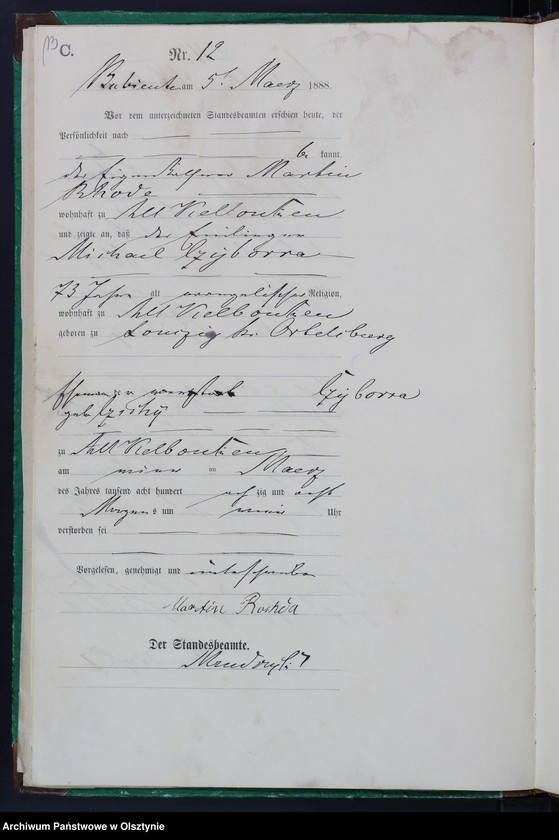 C.
Nr. 12
Babienten am 5t Maerz 1888.
Vor dem unterzeichneten Standesbeamten erschien heute, der
Persönlichkeit nach
be kannt,
der Eigenkäthner Martin
Rhode
wohnhaft zu Alt Kelbonken
und zeigte an, daß der
Michael Czyborra
73 Jahre alt evangelischer Religion,
wohnhaft zu Alt Kelbonken
geboren zu bei Ortelsburg
Ehemann der Czyborra
geb.
zu Alt Kelbonken
am Maerz
des Jahres tausend acht hundert acht zig und acht
Morgens um Uhr
verstorben sei
Vorgelesen, genehmigt und unterschrieben
Martin
Der Standesbeamte.
Archiwum Państwowe w Olsztynie